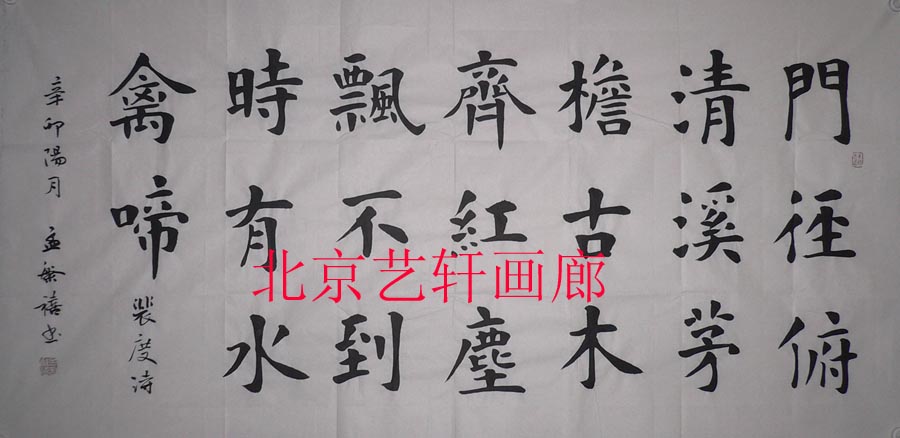 門徑俯
清溪茅
檐古木
齊紅塵
飄不到
時有水
禽啼
裴度诗
辛卯陽月 孟繁禧书
北京艺轩画廊